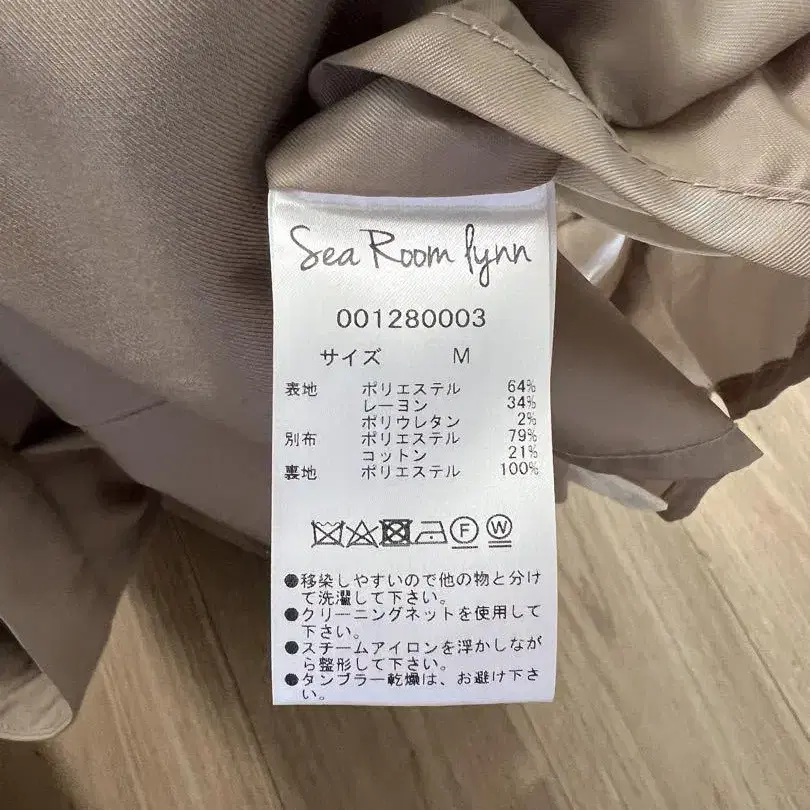 Sea Room lynn
001280003
サイズ M
表地 ポリエステル 64%
レーヨン 34%
ポリウレタン 2%
別布 ポリエステル 79%
コットン 21%
裏地 ポリエステル 100%
F W
●移染しやすいので他の物と分け
て洗濯して下さい。
●クリーニングネットを使用して
下さい。
●スチームアイロンを浮かしなが
ら整形して下さい。
●タンブラー乾燥は、お避け下さ
い。